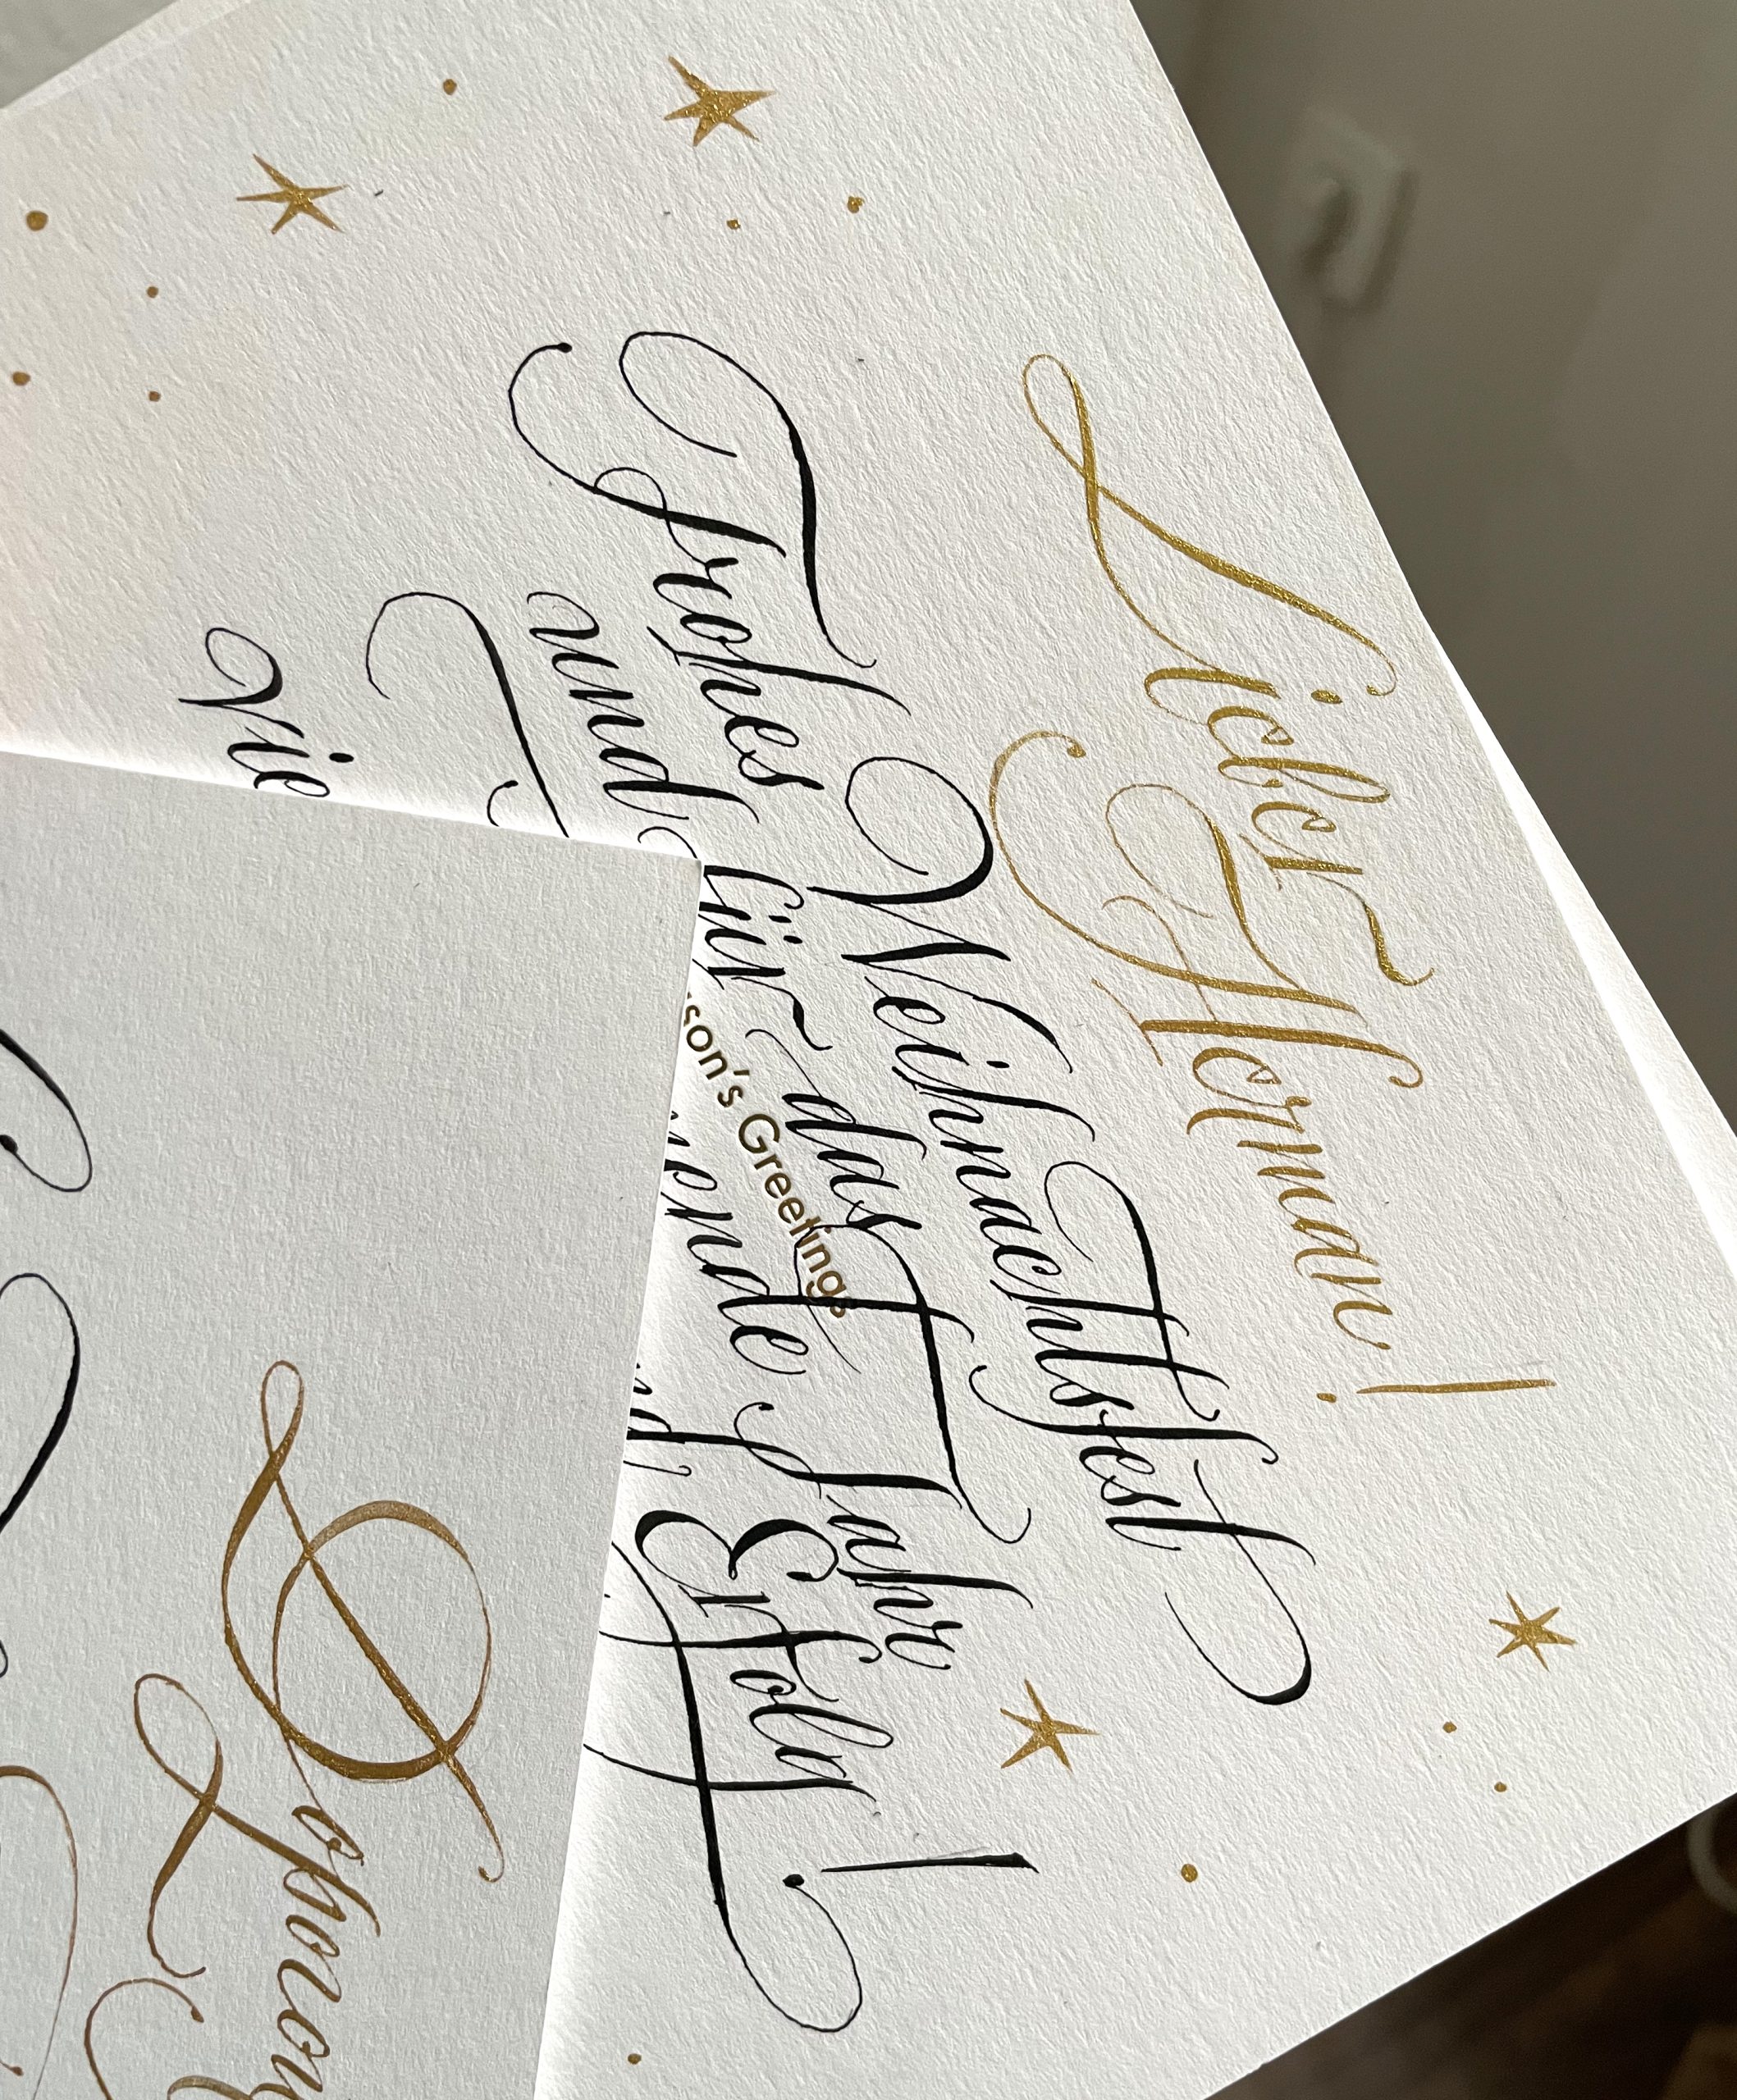 Lieber Herman!
Frohes Weihnachtsfest
und für das
Jahr
Vie
Erfolg!
son's Greetings